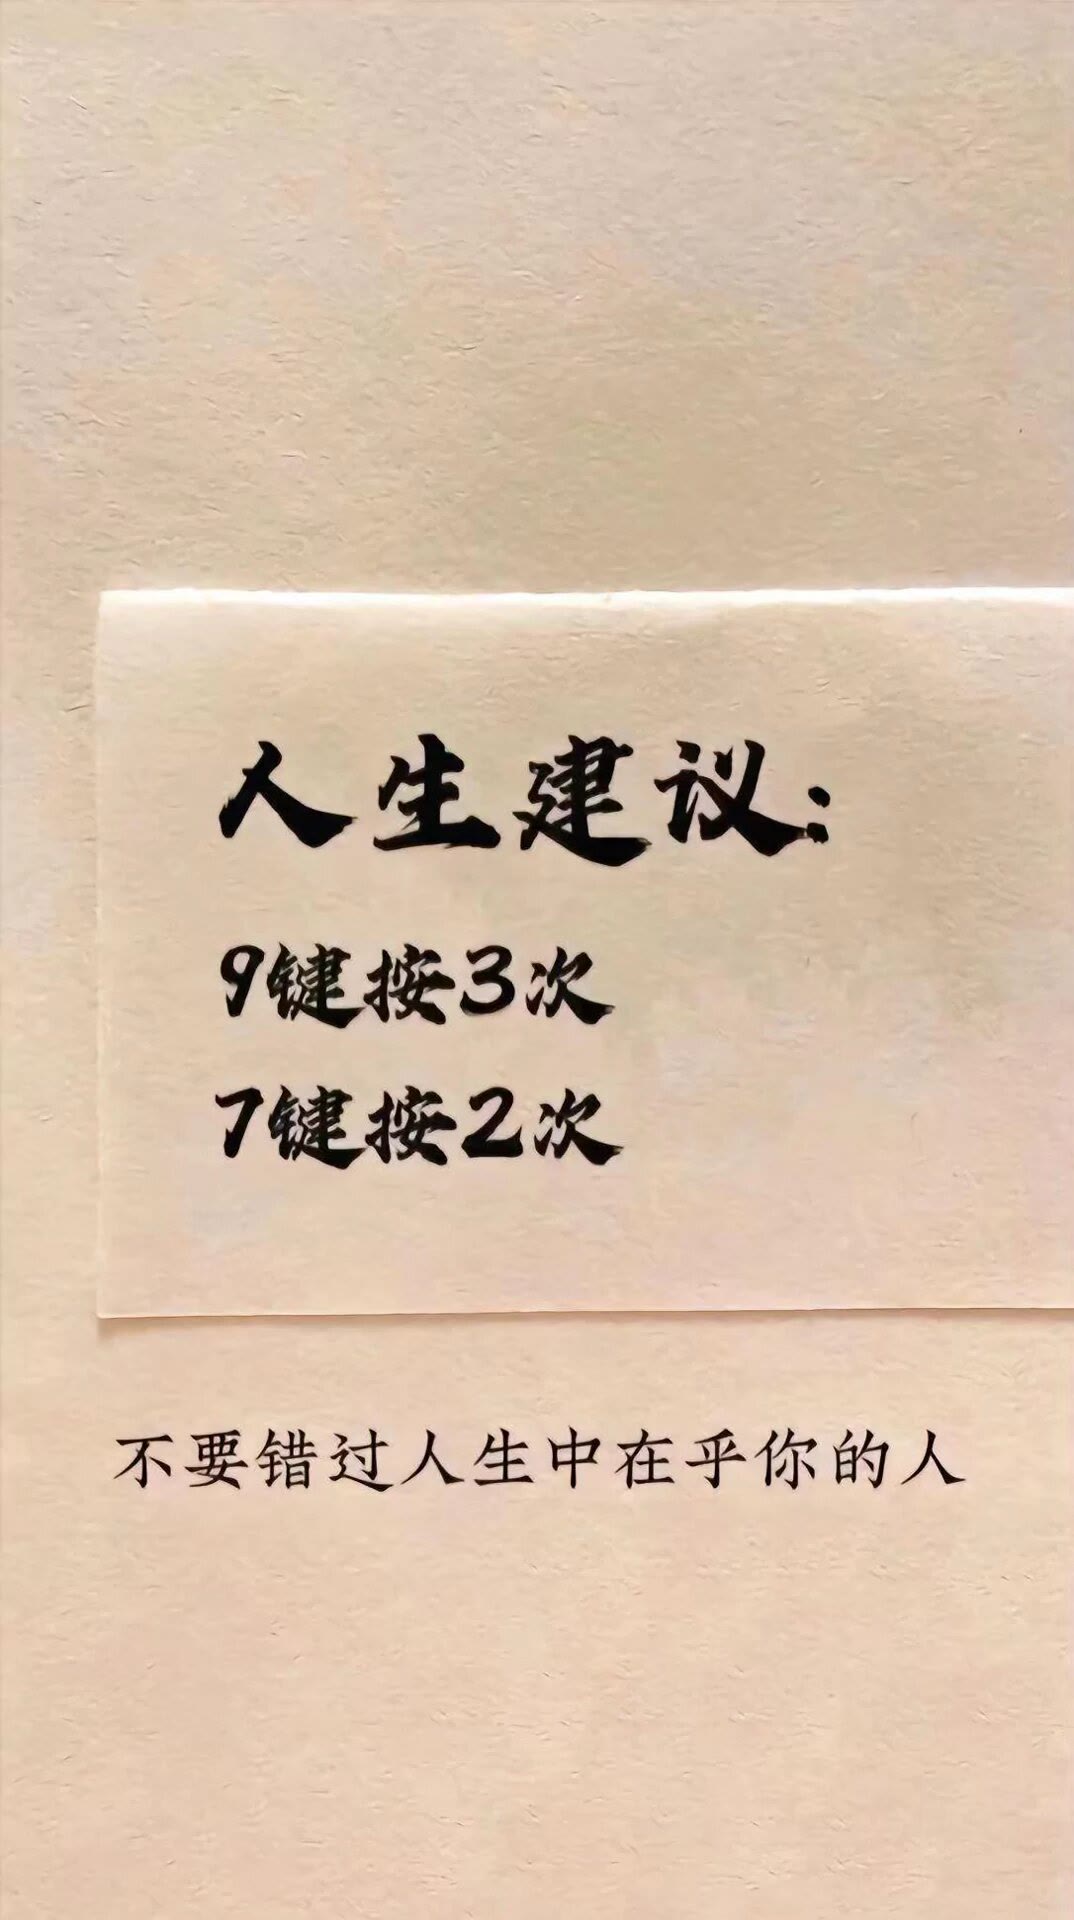 人生建议：
9键按3次
7键按2次
不要错过人生中在乎你的人